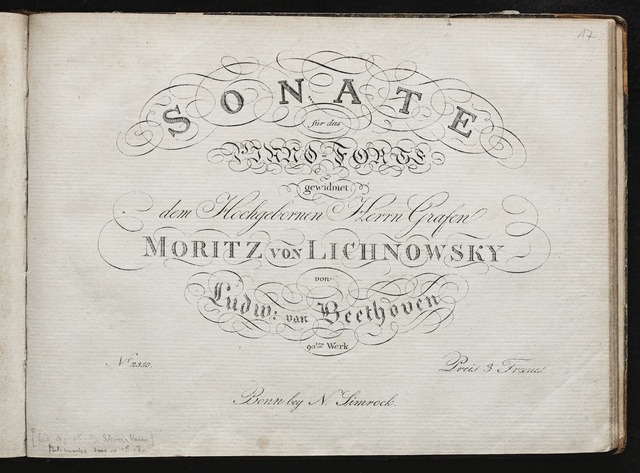 17
SONATE
für das
PIANO-FORTE
gewidmet
dem Hochgebornen Herrn Grafen
MORITZ VON LICHNOWSKY
von
Ludw: van Beethoven
90tes Werk
Nr. 2350. Preis 3 Francs
Bonn bey N. Simrock.